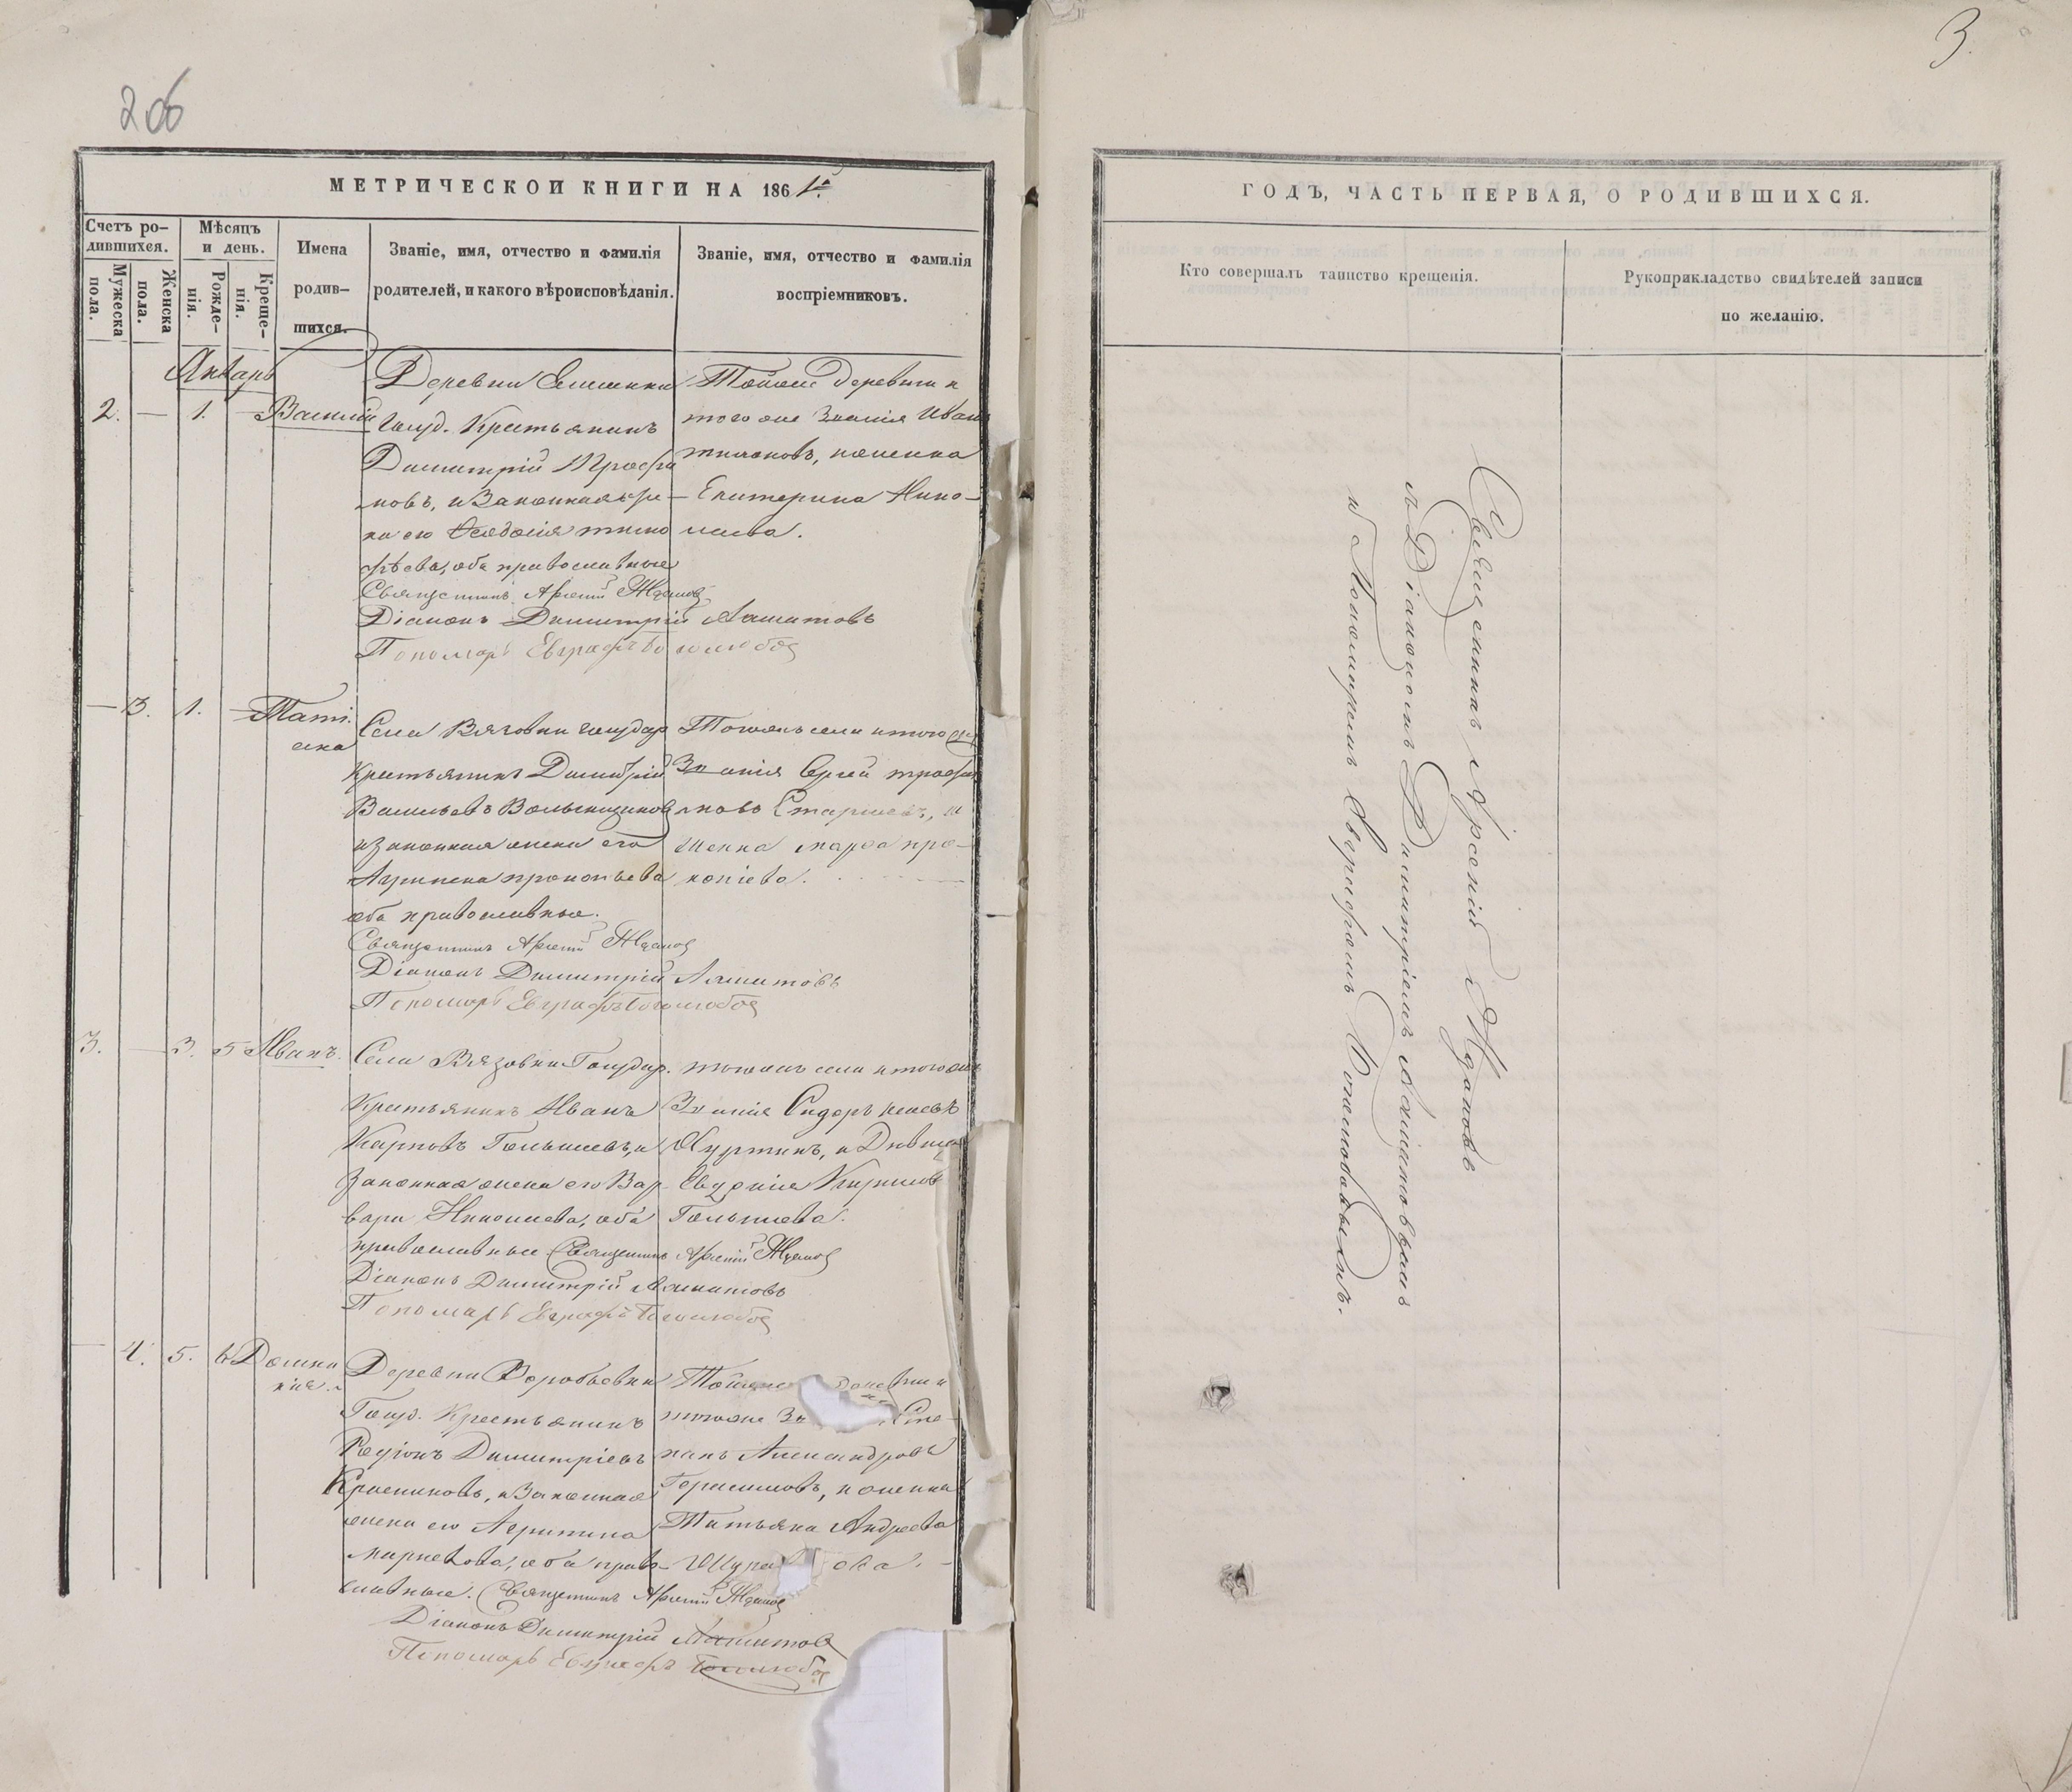 2об
3.
МЕТРИЧЕСКОЙ КНИГИ НА 1861.
Счетъ ро-
дившихся.
Мужеска
пола.
Женска
пола.
Мѣсяцъ
и день.
Рожде-
нія.
Креще-
нія.
Имена
родив-
шихся.
Званіе, имя, отчество и фамилія
родителей, и какого вѣроисповѣданія.
Званіе, имя, отчество и фамилія
воспріемниковъ.
Январь
2. — 1. — Василій
Деревни
Госуд. Крестьянинъ
Димитрій
новъ, и Законная же-
на его
оба православные
Священникъ Арсеній Ждановъ
Діаконъ Димитрій
Пономарь Евграфъ Боголюбовъ
Тойже деревни и
того же Званія Иванъ
и женка
Екатерина Нико-
лаева.
— 3. 1. — Татi
ана
Села Вязовки Государ
Крестьянинъ Димитрій
Васильевъ
и законная жена его
Агрипена Прокопьева
оба православные.
Священникъ Арсеній Ждановъ
Діаконъ Димитрій
Пономарь Евграфъ Боголюбовъ
Тогожъ села и того же
Званія Сергей
и
женка Марѳа Про-
копіева.
3. — 3. 5 Иванъ.
Села Вязовки Государ.
Крестьянинъ Иванъ
Карповъ Голышевъ, и
Законная жена его Вар-
вара Николаева, оба
православные Священникъ Арсеній Ждановъ
Діаконъ Димитрій
Пономарь Евграфъ Боголюбовъ
тогожъ села и того же
Званія Сидоръ
и Дѣвица
Голышева.
— 4. 5. 6 Домни
кія.
Деревни Воробьевки
Госуд. Крестьянинъ
Родіонъ Димитріевъ
и Законная
жена его Агрипина
оба право-
славные. Священникъ Арсеній Ждановъ
Діаконъ Димитрій
Пономарь Евграфъ Боголюбовъ
Тойже
тогоже Сте-
панъ Александровъ
Герасимовъ, и женка
Татьяна Андреева
ГОДЪ, ЧАСТЬ ПЕРВАЯ, О РОДИВШИХСЯ.
Кто совершалъ таинство крещенія.
Рукоприкладство свидѣтелей записи
по желанію.
Священникъ Арсеній Ждановъ
съ Діакономъ Димитріемъ
и Пономаремъ Евграфомъ Боголюбовымъ.